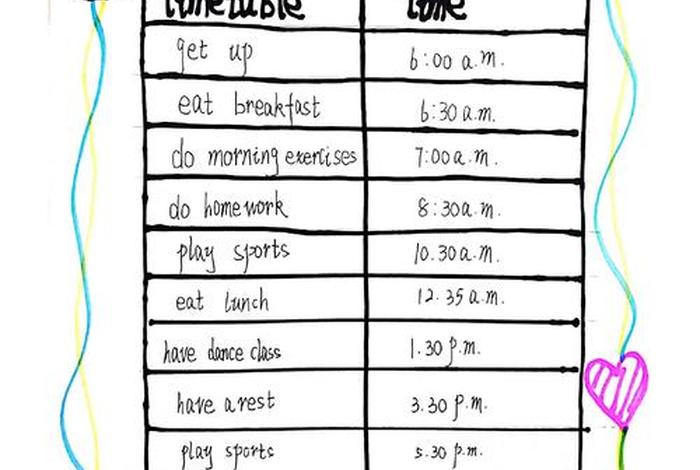 timetable time
get up 6:00 a.m.
eat breakfast 6:30 a.m.
do morning exercises 7:00 a.m.
do homework 8:30 a.m.
play sports 10.30 a.m.
eat lunch 12.35 a.m.
have dance class 1.30 p.m.
have a rest 3.30 p.m.
play sports 5.30 p.m.